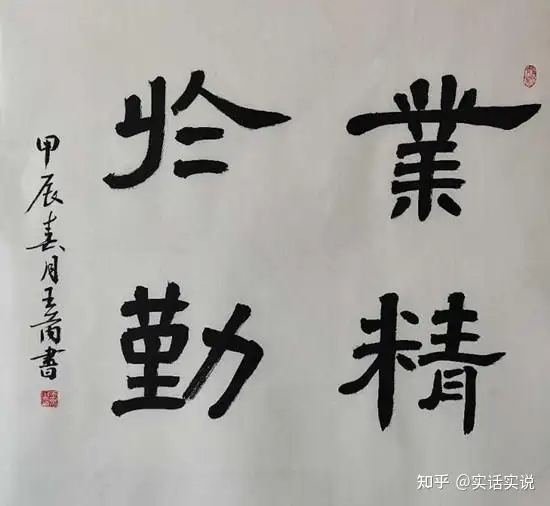 業精
於勤
甲辰春月王芮書
知乎 @实话实说